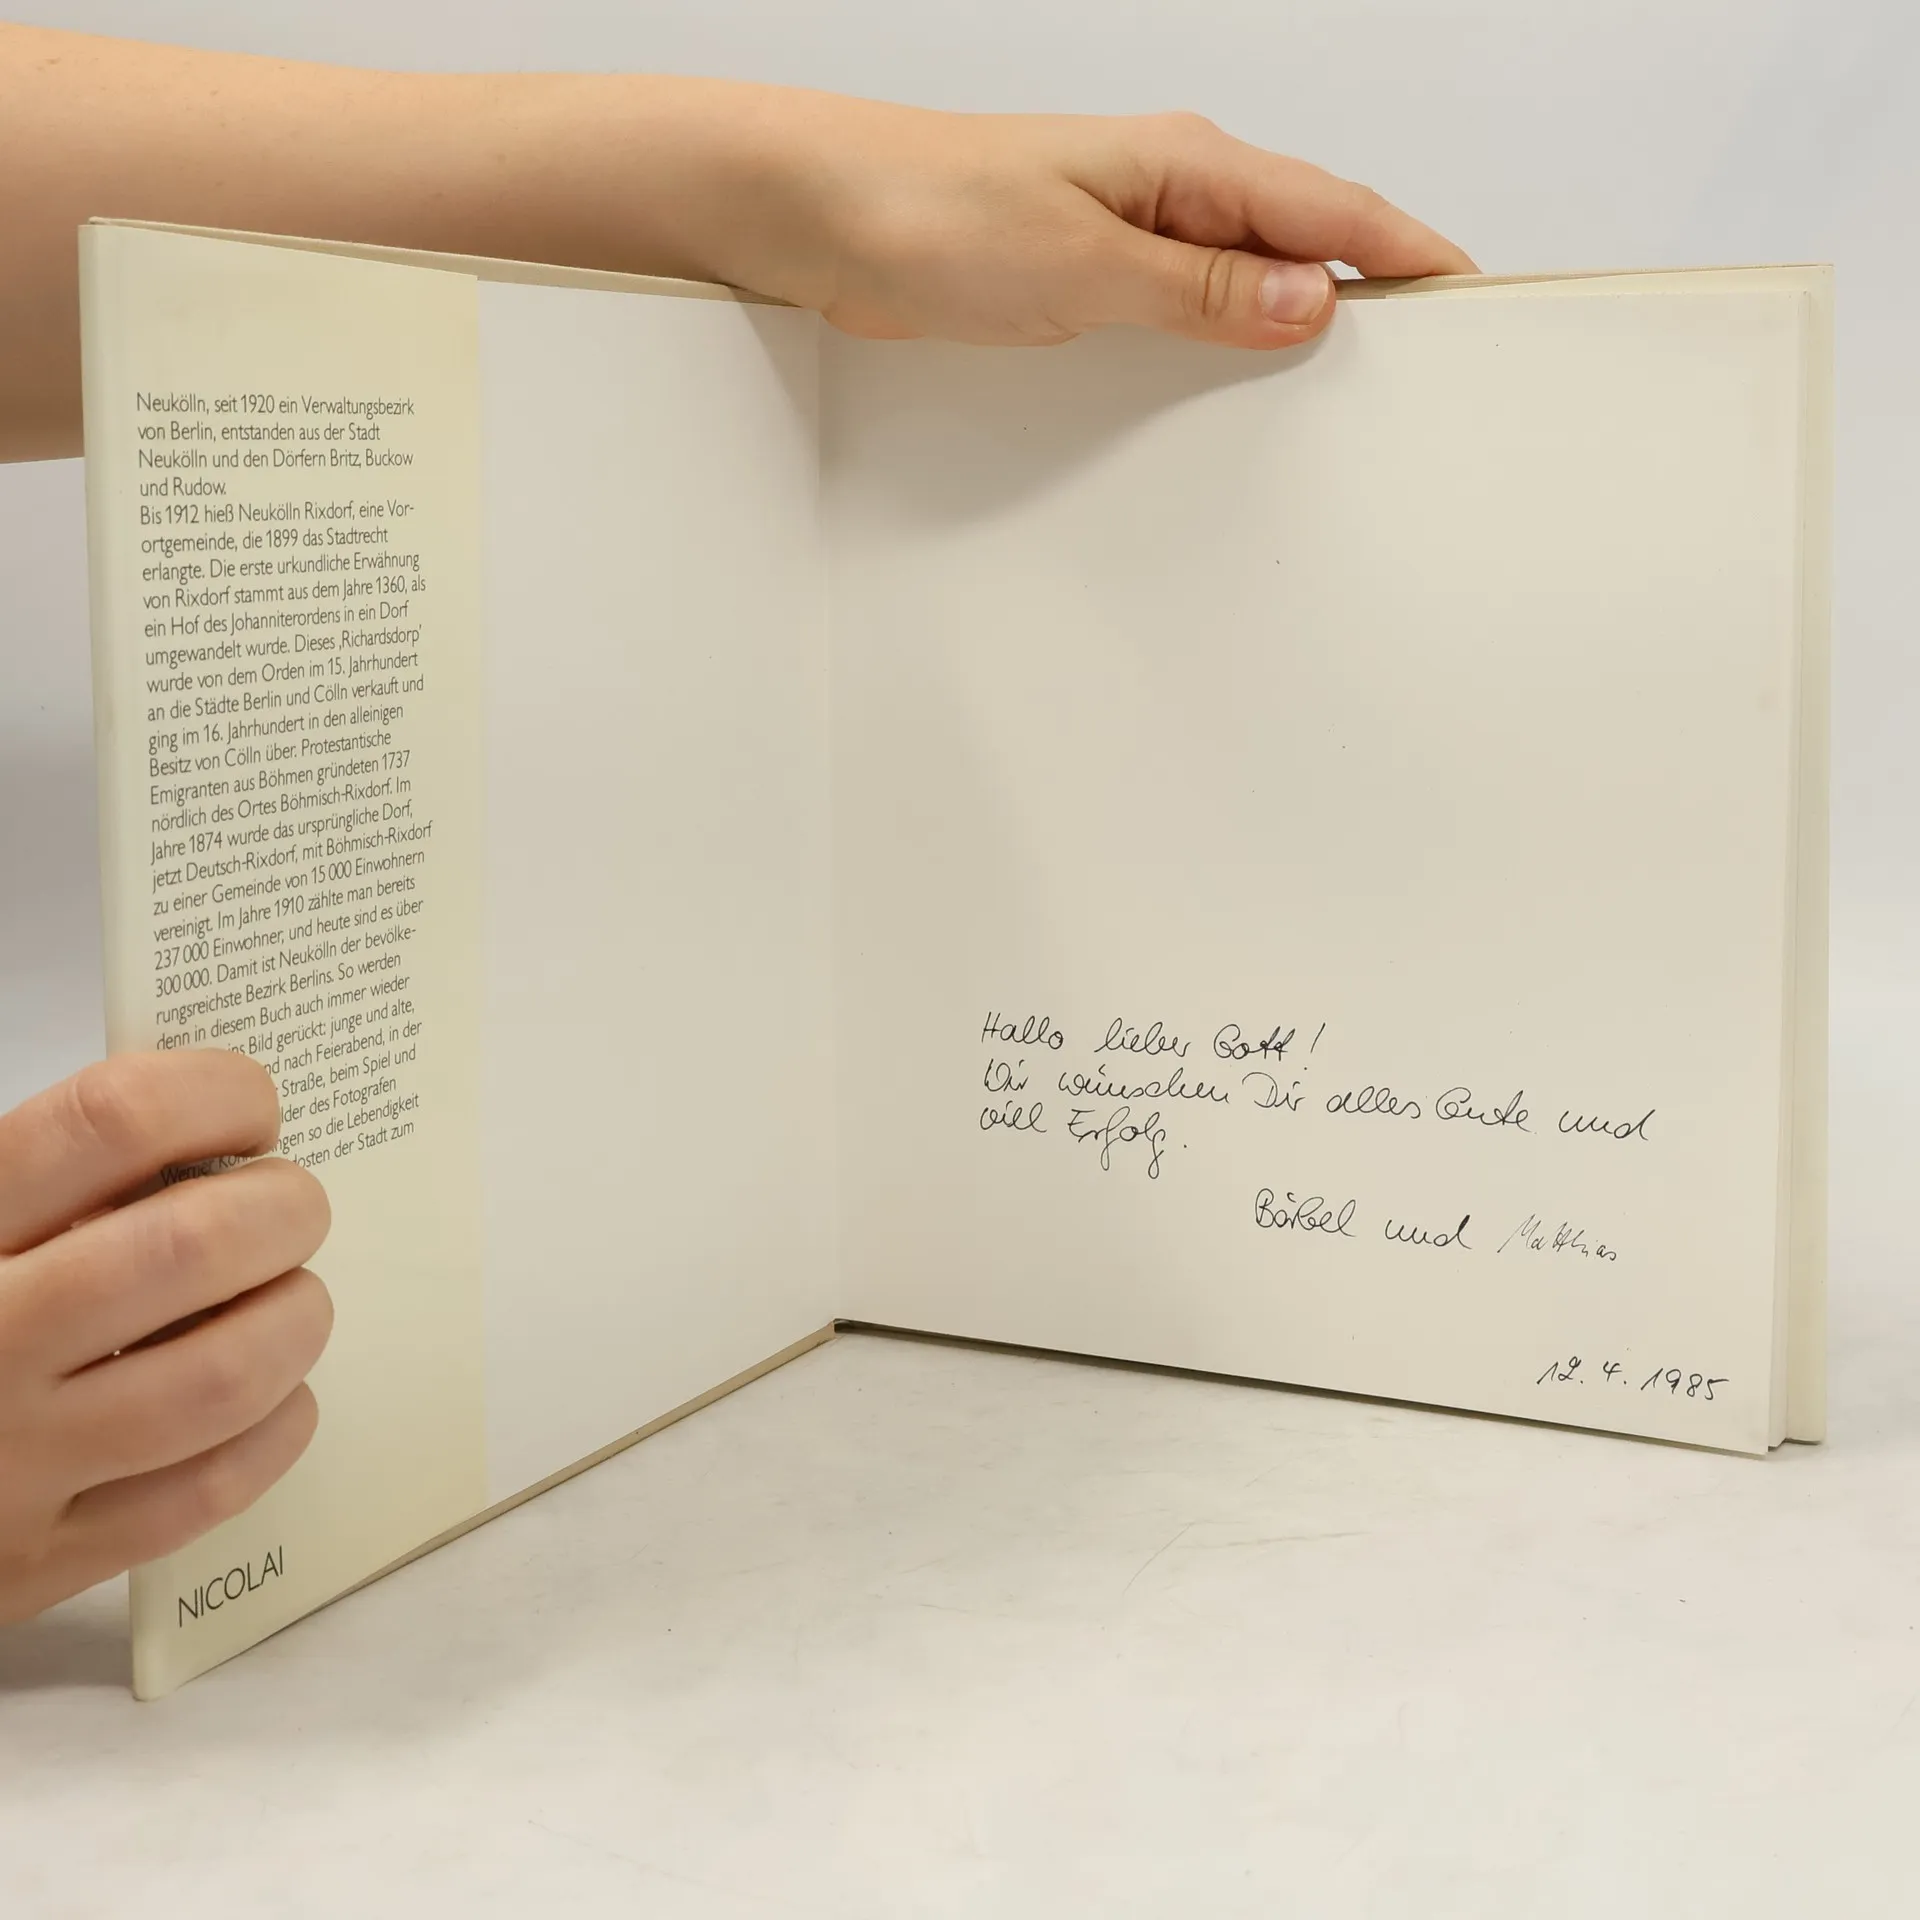 Neukölln, seit 1920 ein Verwaltungsbezirk
von Berlin, entstanden aus der Stadt
Neukölln und den Dörfern Britz, Buckow
und Rudow.
Bis 1912 hieß Neukölln Rixdorf, eine Vor-
ortgemeinde, die 1899 das Stadtrecht
erlangte. Die erste urkundliche Erwähnung
von Rixdorf stammt aus dem Jahre 1360, als
ein Hof des Johanniterordens in ein Dorf
umgewandelt wurde. Dieses ‚Richardsdorp'
wurde von dem Orden im 15. Jahrhundert
an die Städte Berlin und Cölln verkauft und
ging im 16. Jahrhundert in den alleinigen
Besitz von Cölln über. Protestantische
Emigranten aus Böhmen gründeten 1737
nördlich des Ortes Böhmisch-Rixdorf. Im
Jahre 1874 wurde das ursprüngliche Dorf,
jetzt Deutsch-Rixdorf, mit Böhmisch-Rixdorf
zu einer Gemeinde von 15 000 Einwohnern
vereinigt. Im Jahre 1910 zählte man bereits
237 000 Einwohner, und heute sind es über
300 000. Damit ist Neukölln der bevölke-
rungsreichste Bezirk Berlins. So werden
denn in diesem Buch auch immer wieder
ins Bild gerückt: junge und alte,
nd nach Feierabend, in der
Straße, beim Spiel und
lder des Fotografen
ngen so die Lebendigkeit
Werner dosten der Stadt zum
NICOLAI
Hallo lieber Gott!
Wir wünschen Dir alles Gute und
viel Erfolg.
Bärbel und Matthias
12. 4. 1985